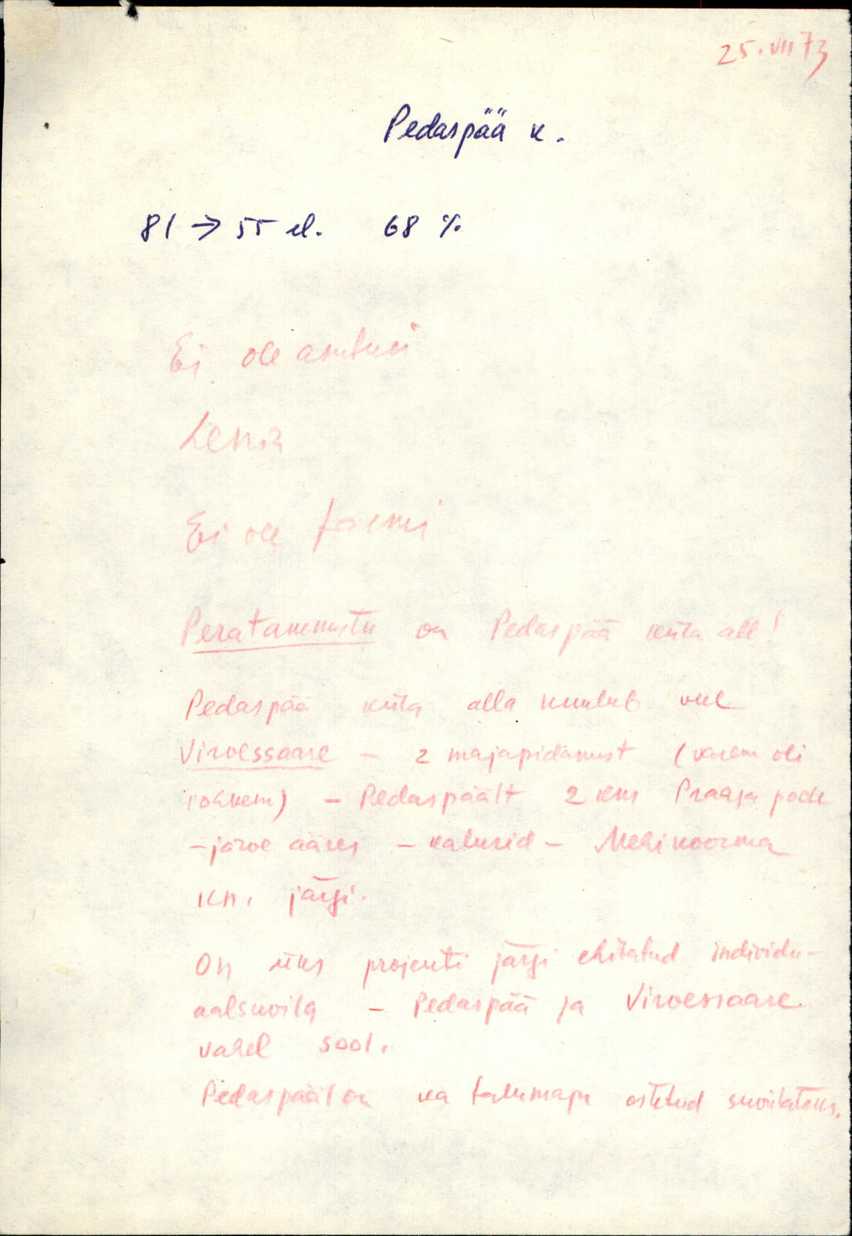 25.VII 73
Pedaspää k.
81 → 55 el. 68 %
Ei ole asutusi
Ei ole
Peratammistu on Pedaspää küla all!
Pedaspää küla alla kuulub veel
Viroessaare – 2 majapidamist (varem oli
rohkem) – Pedaspäält 2 km Praaga poole
– järve ääres – kalurid – Mehikoorma
kn. järgi.
On üks projekti järgi ehitatud individu-
aalsuvila – Pedaspää ja Viroessaare
vahel sool.
Pedaspääl on ka talumaju ostetud suvilateks.